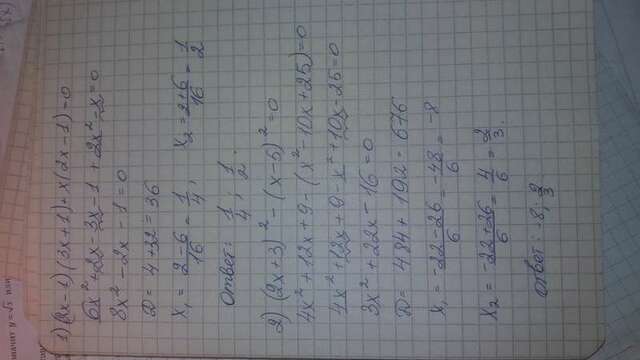 1) (2x-1)(3x+1)+x(2x-1)=0
6x²+2x-3x-1+2x²-x=0
8x²-2x-1=0
D=4+32=36
x₁=2-6/16=1/4; x₂=2+6/16=1/2
Ответ: 1/4; 1/2.
2) (2x+3)²-(x-5)²=0
4x²+12x+9-(x²-10x+25)=0
4x²+12x+9-x²+10x-25=0
3x²+22x-16=0
D=484+192=676
x₁=-22-26/6=-48/6=-8
x₂=-22+26/6=4/6=2/3.
Ответ: -8; 2/3
значит y=√x или